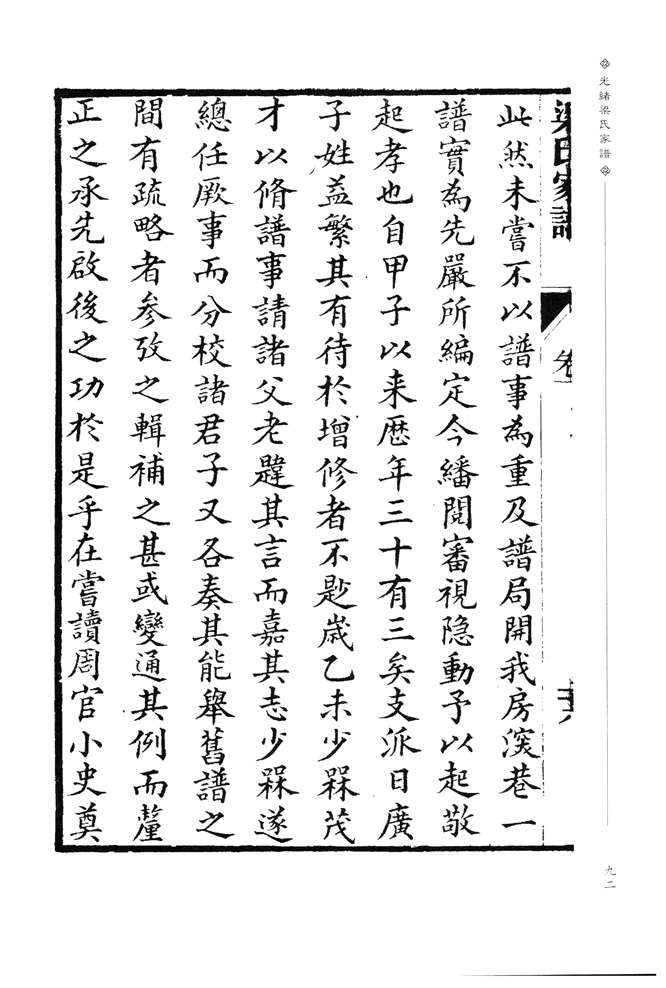 光緒梁氏家譜
梁氏家譜
卷一
此然未嘗不以譜事為重及譜局開我房渓巷一
譜實為先嚴所編定今繙閱審視隐動予以起敬
起孝也自甲子以来歴年三十有三矣支派日廣
子姓益繁其有待於增修者不尠嵗乙未少槑茂
才以脩譜事請諸父老韙其言而嘉其志少槑遂
總任厥事而分校諸君子又各奏其能舉舊譜之
間有疏略者參攷之輯補之甚或變通其例而釐
正之承先啟後之功於是乎在嘗讀周官小史奠
九二